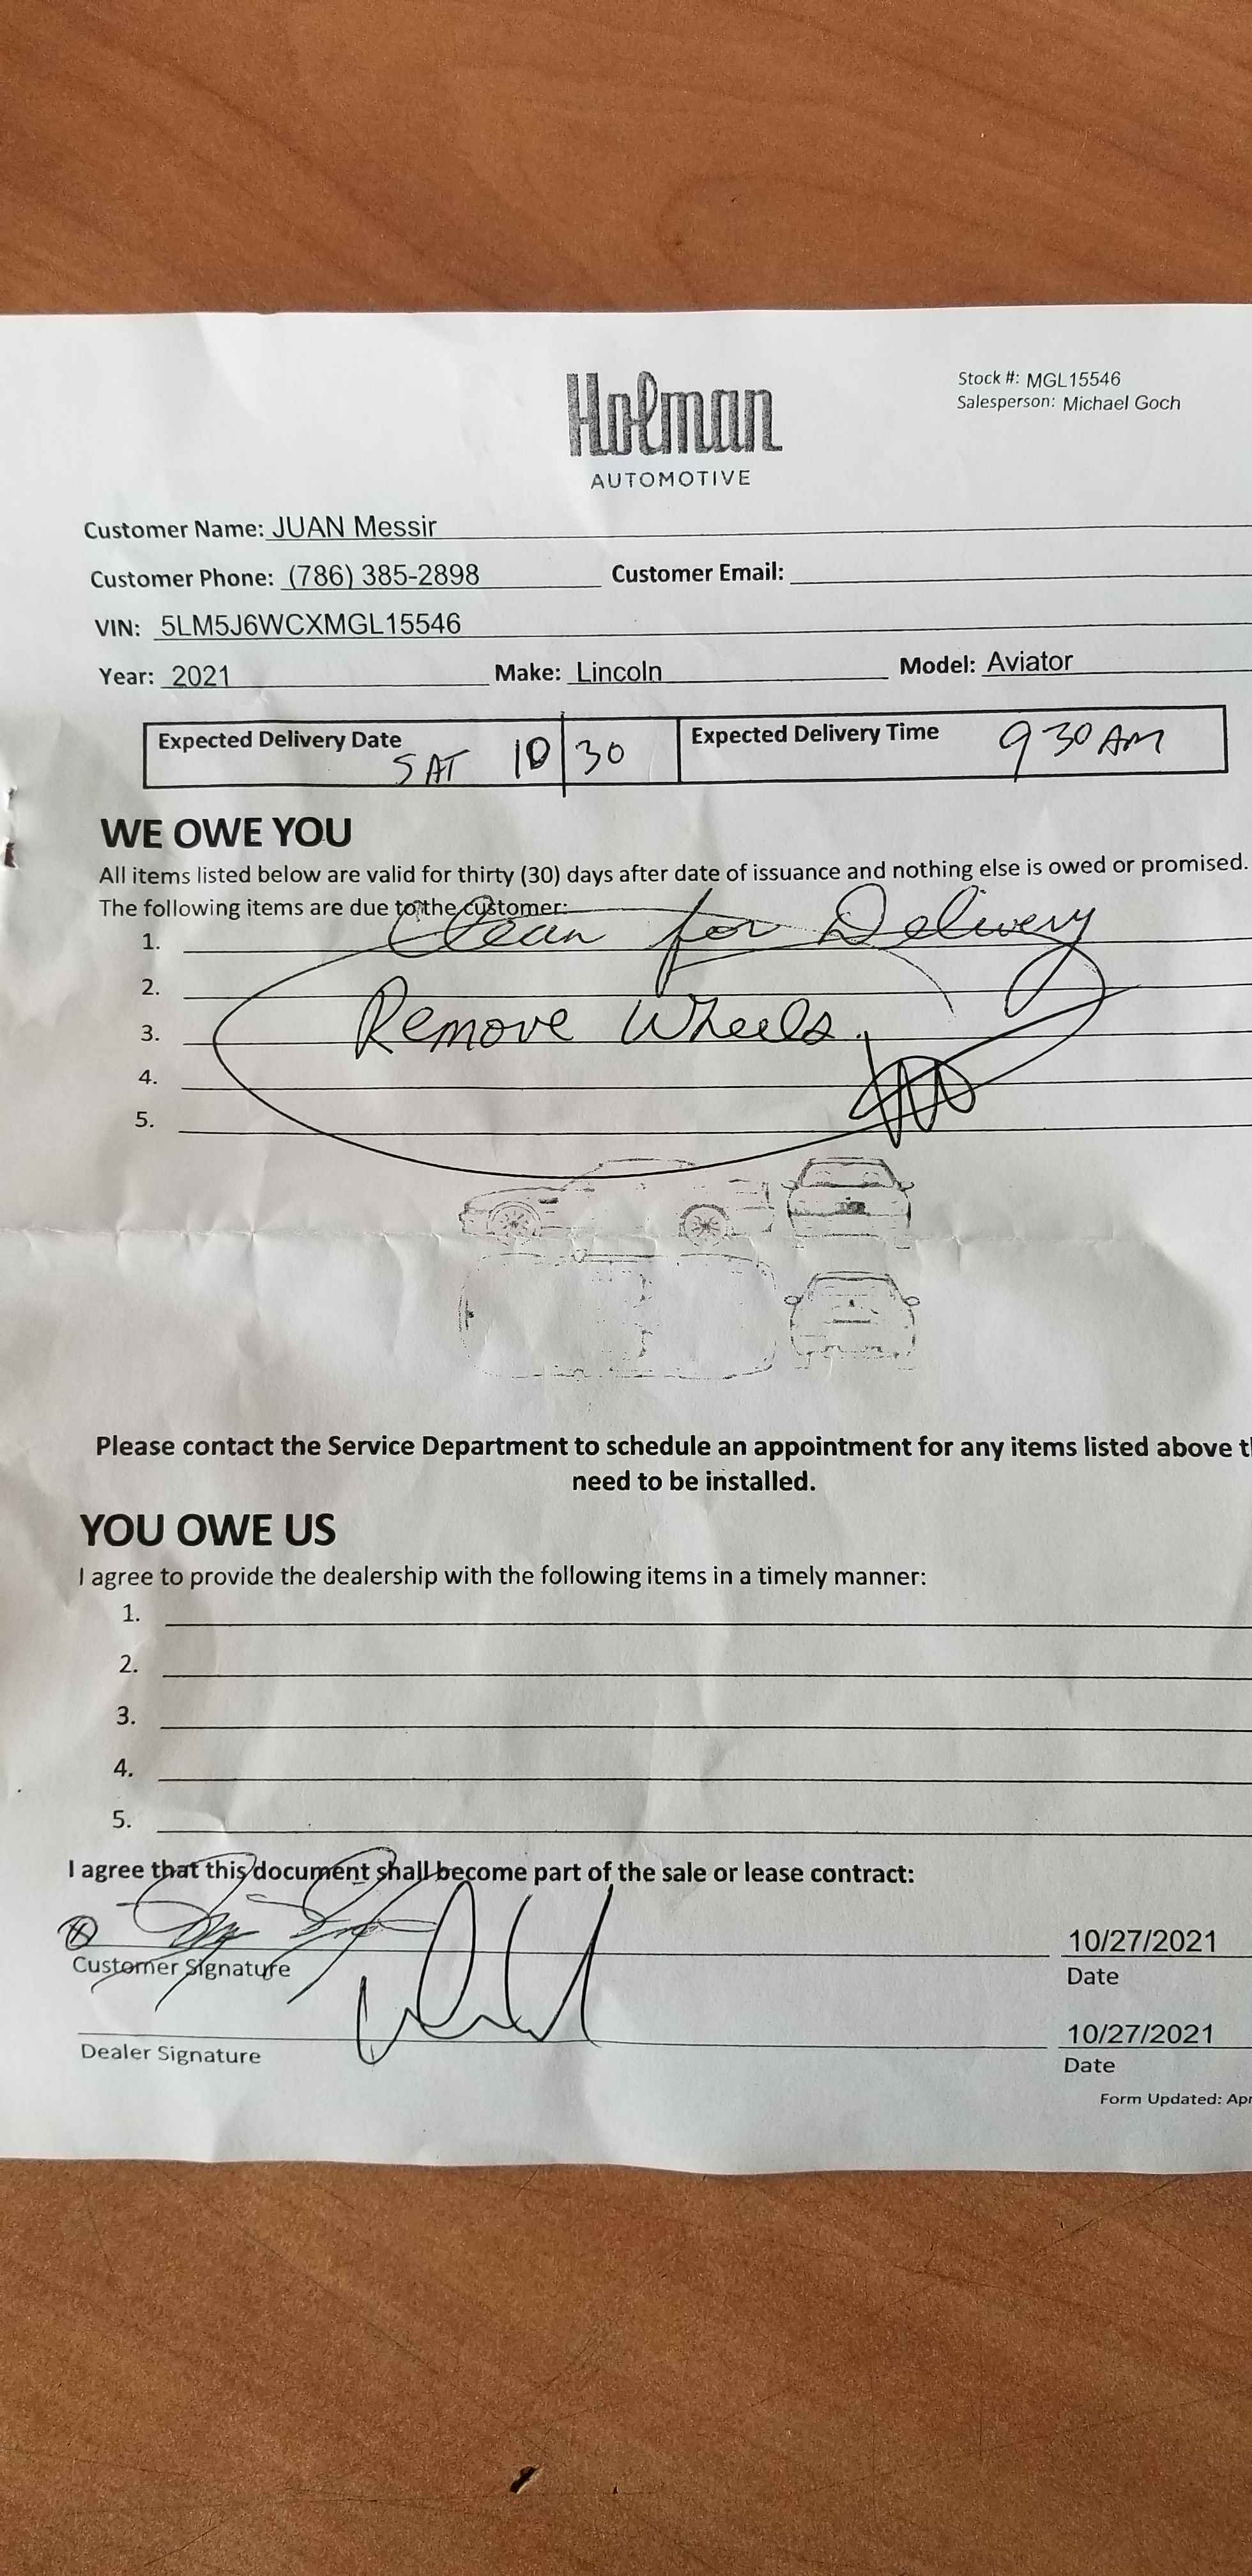 Holman
AUTOMOTIVE
Stock #: MGL15546
Salesperson: Michael Goch
Customer Name: JUAN Messir
Customer Phone: (786) 385-2898 Customer Email:
VIN: 5LM5J6WCXMGL15546
Year: 2021 Make: Lincoln Model: Aviator
Expected Delivery Date SAT 10/30 Expected Delivery Time 9 30 AM
WE OWE YOU
All items listed below are valid for thirty (30) days after date of issuance and nothing else is owed or promised.
The following items are due to the customer:
1. Clean for Delivery
2.
3. Remove Wheels.
4.
5.
Please contact the Service Department to schedule an appointment for any items listed above
need to be installed.
YOU OWE US
I agree to provide the dealership with the following items in a timely manner:
1.
2.
3.
4.
5.
I agree that this document shall become part of the sale or lease contract:
10/27/2021
Customer Signature Date
10/27/2021
Dealer Signature Date
Form Updated: Apr